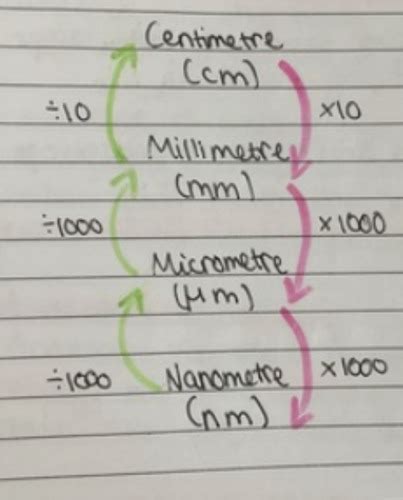 Centimetre
(cm)
÷10
×10
Millimetre
(mm)
÷1000
×1000
Micrometre
(μm)
÷1000
×1000
Nanometre
(nm)